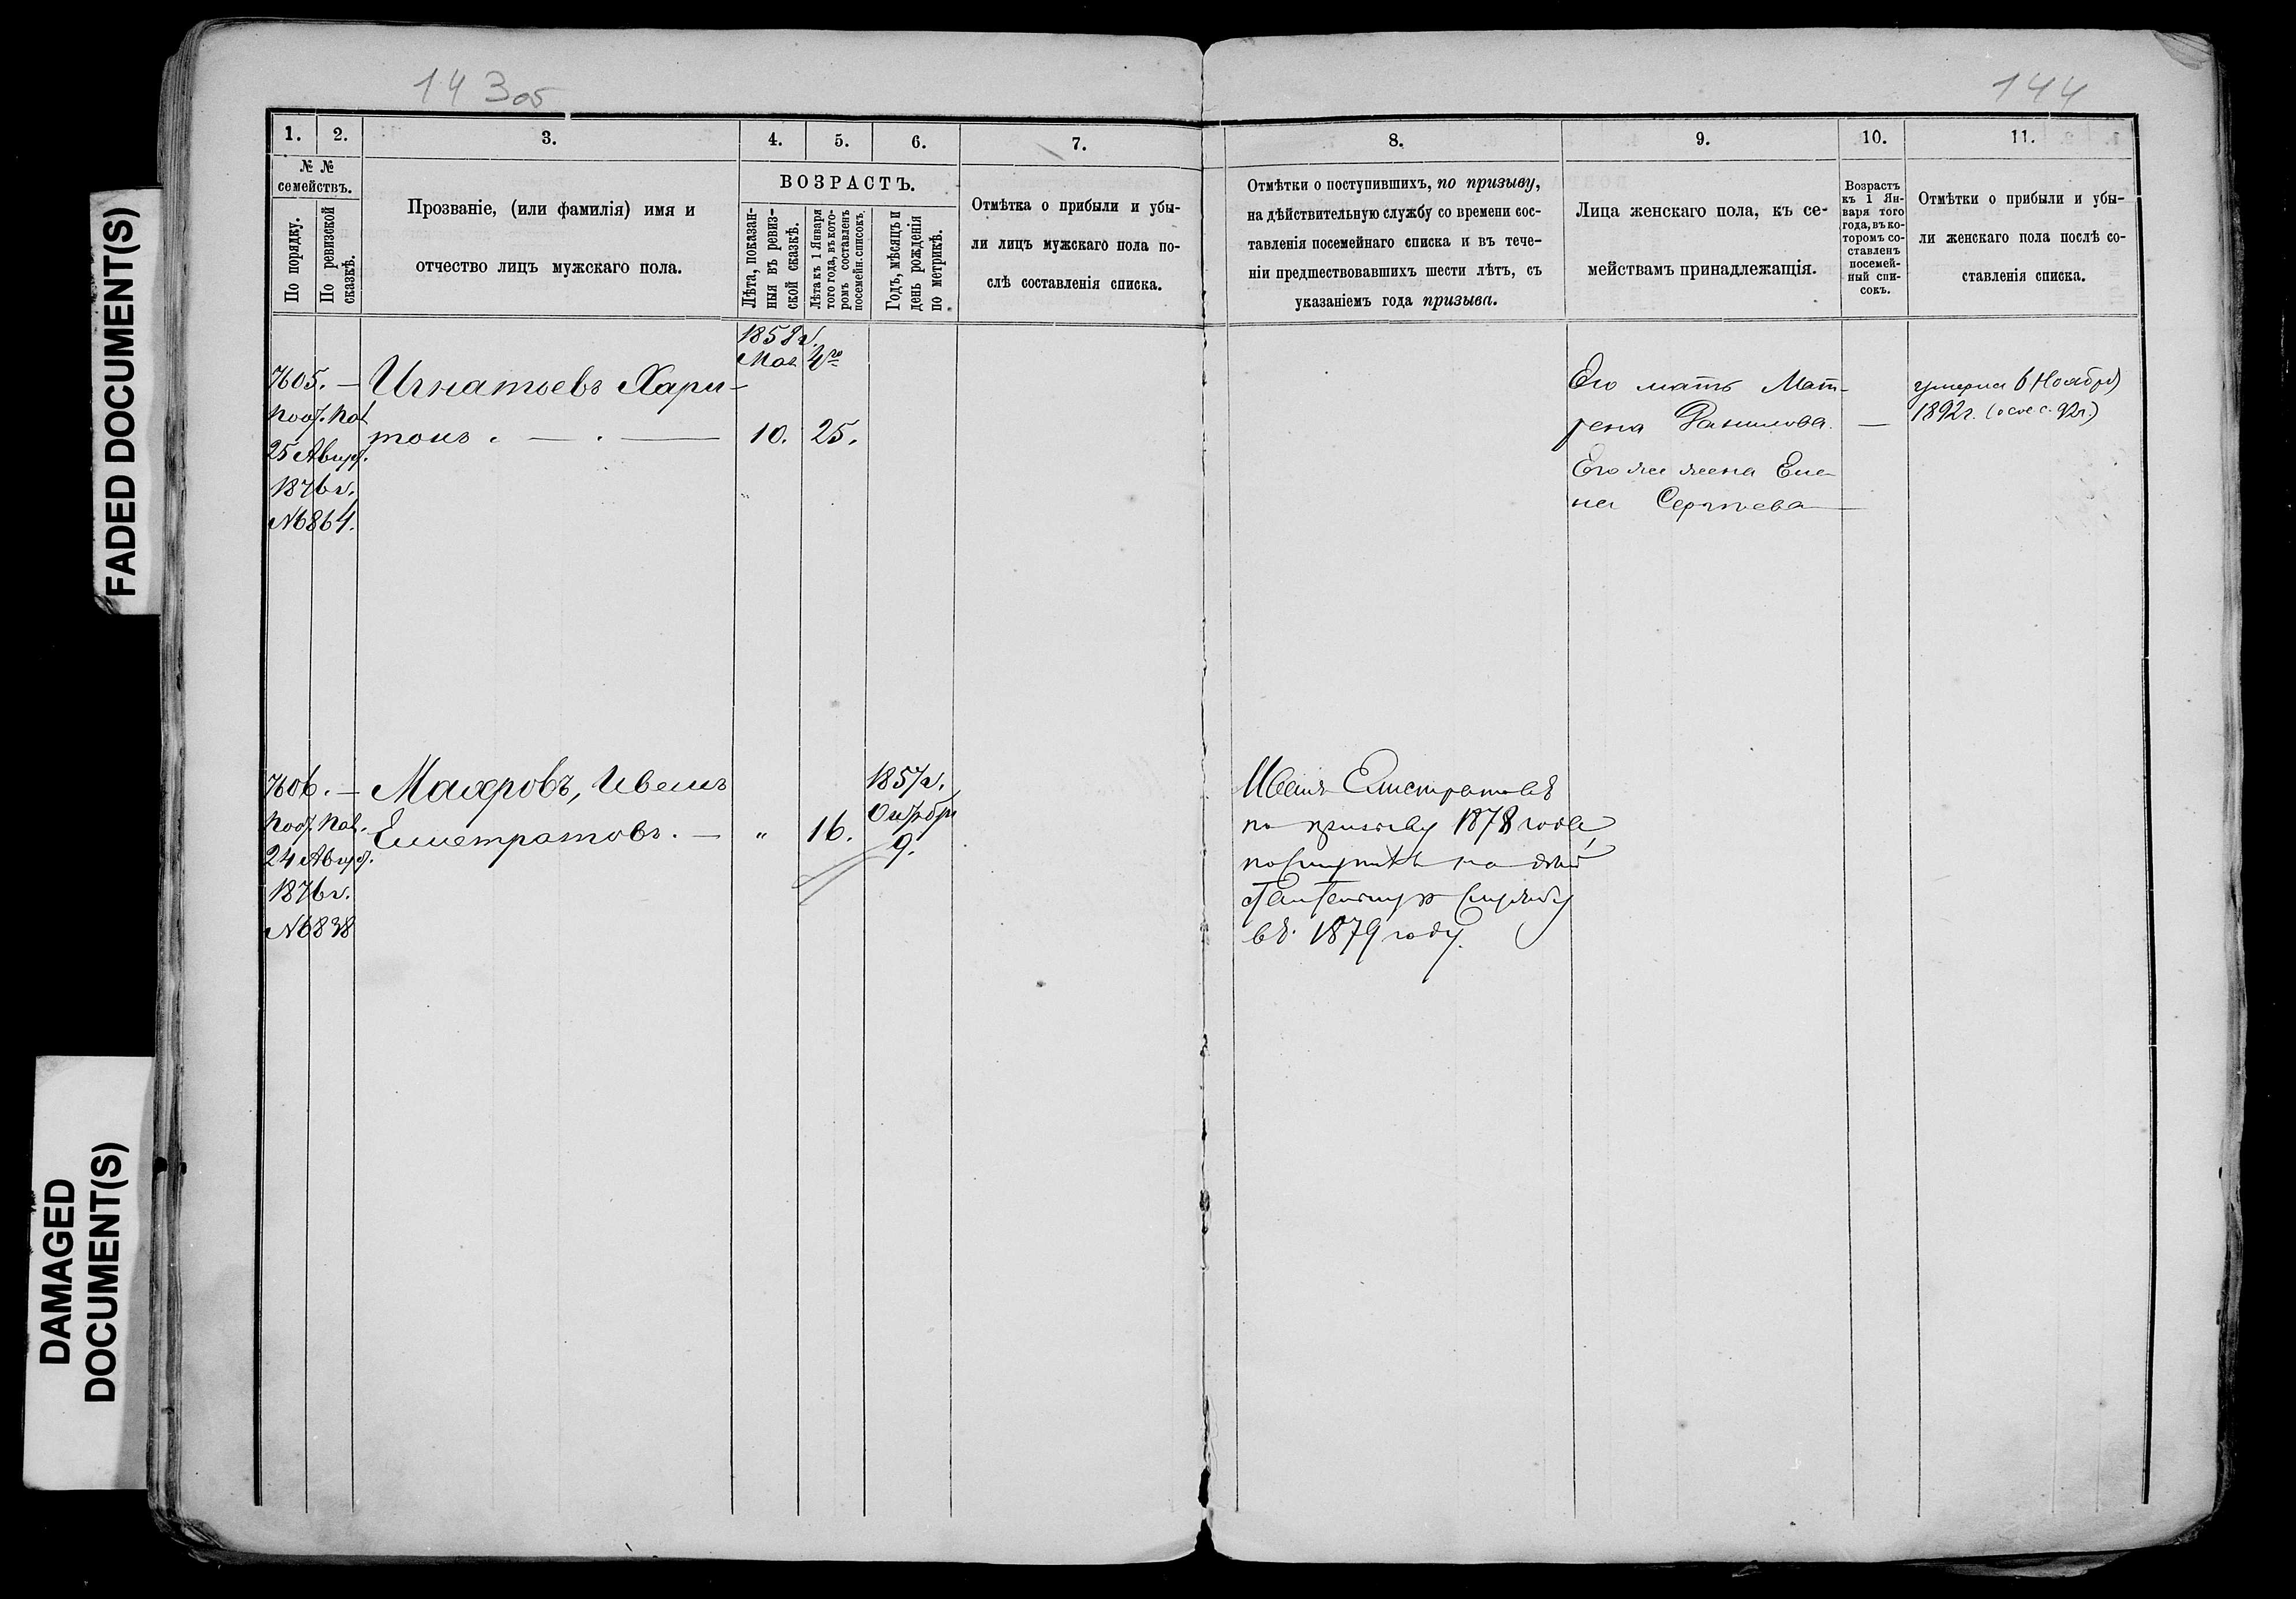 143 об
144
FADED DOCUMENT(S)
DAMAGED
DOCUMENT(S)
1.
2.
3.
4.
5.
6.
7.
№ №
семействъ.
По порядку.
По ревизской
сказкѣ.
Прозваніе, (или фамилія) имя и
отчество лицъ мужскаго пола.
ВОЗРАСТЪ.
Лѣта, показан-
ныя въ ревиз-
ской сказкѣ.
Лѣта къ 1 Января
того года, въ кото-
ромъ составленъ
посемейн. списокъ.
Годъ, мѣсяцъ и
день рожденія
по метрикѣ.
Отмѣтка о прибыли и убы-
ли лицъ мужскаго пола по-
слѣ составленія списка.
8.
9.
10.
11.
Отмѣтки о поступившихъ, по призыву,
на дѣйствительную службу со времени сос-
тавленія посемейнаго списка и въ тече-
ніи предшествовавшихъ шести лѣтъ, съ
указаніемъ года призыва.
Лица женскаго пола, къ се-
мействамъ принадлежащія.
Возрастъ
къ 1 Ян-
варя того
года, въ ко-
торомъ со-
ставленъ
посемей-
ный спи-
сокъ.
Отмѣтки о прибыли и убы-
ли женскаго пола послѣ со-
ставленія списка.
1858 г.
Мая 4го
7605. — Игнатьевъ Хари-
тонъ. — . — 10. 25.
25 Авгус.
1876 г.
№ 6864.
Его мать Мат-
рена Данилова. —
Его же жена Еле-
на Сергѣева —
умерла 6 Ноября
1892 г.
7606. — Махровъ, Иванъ
Елистратовъ. — „ 16.
1857 г.
Октября
9.
24 Авгус.
1876 г.
№ 6838
Иванъ Елистратовъ
по призыву 1878 года
поступилъ на дѣй
ствительную службу
въ 1879 году.